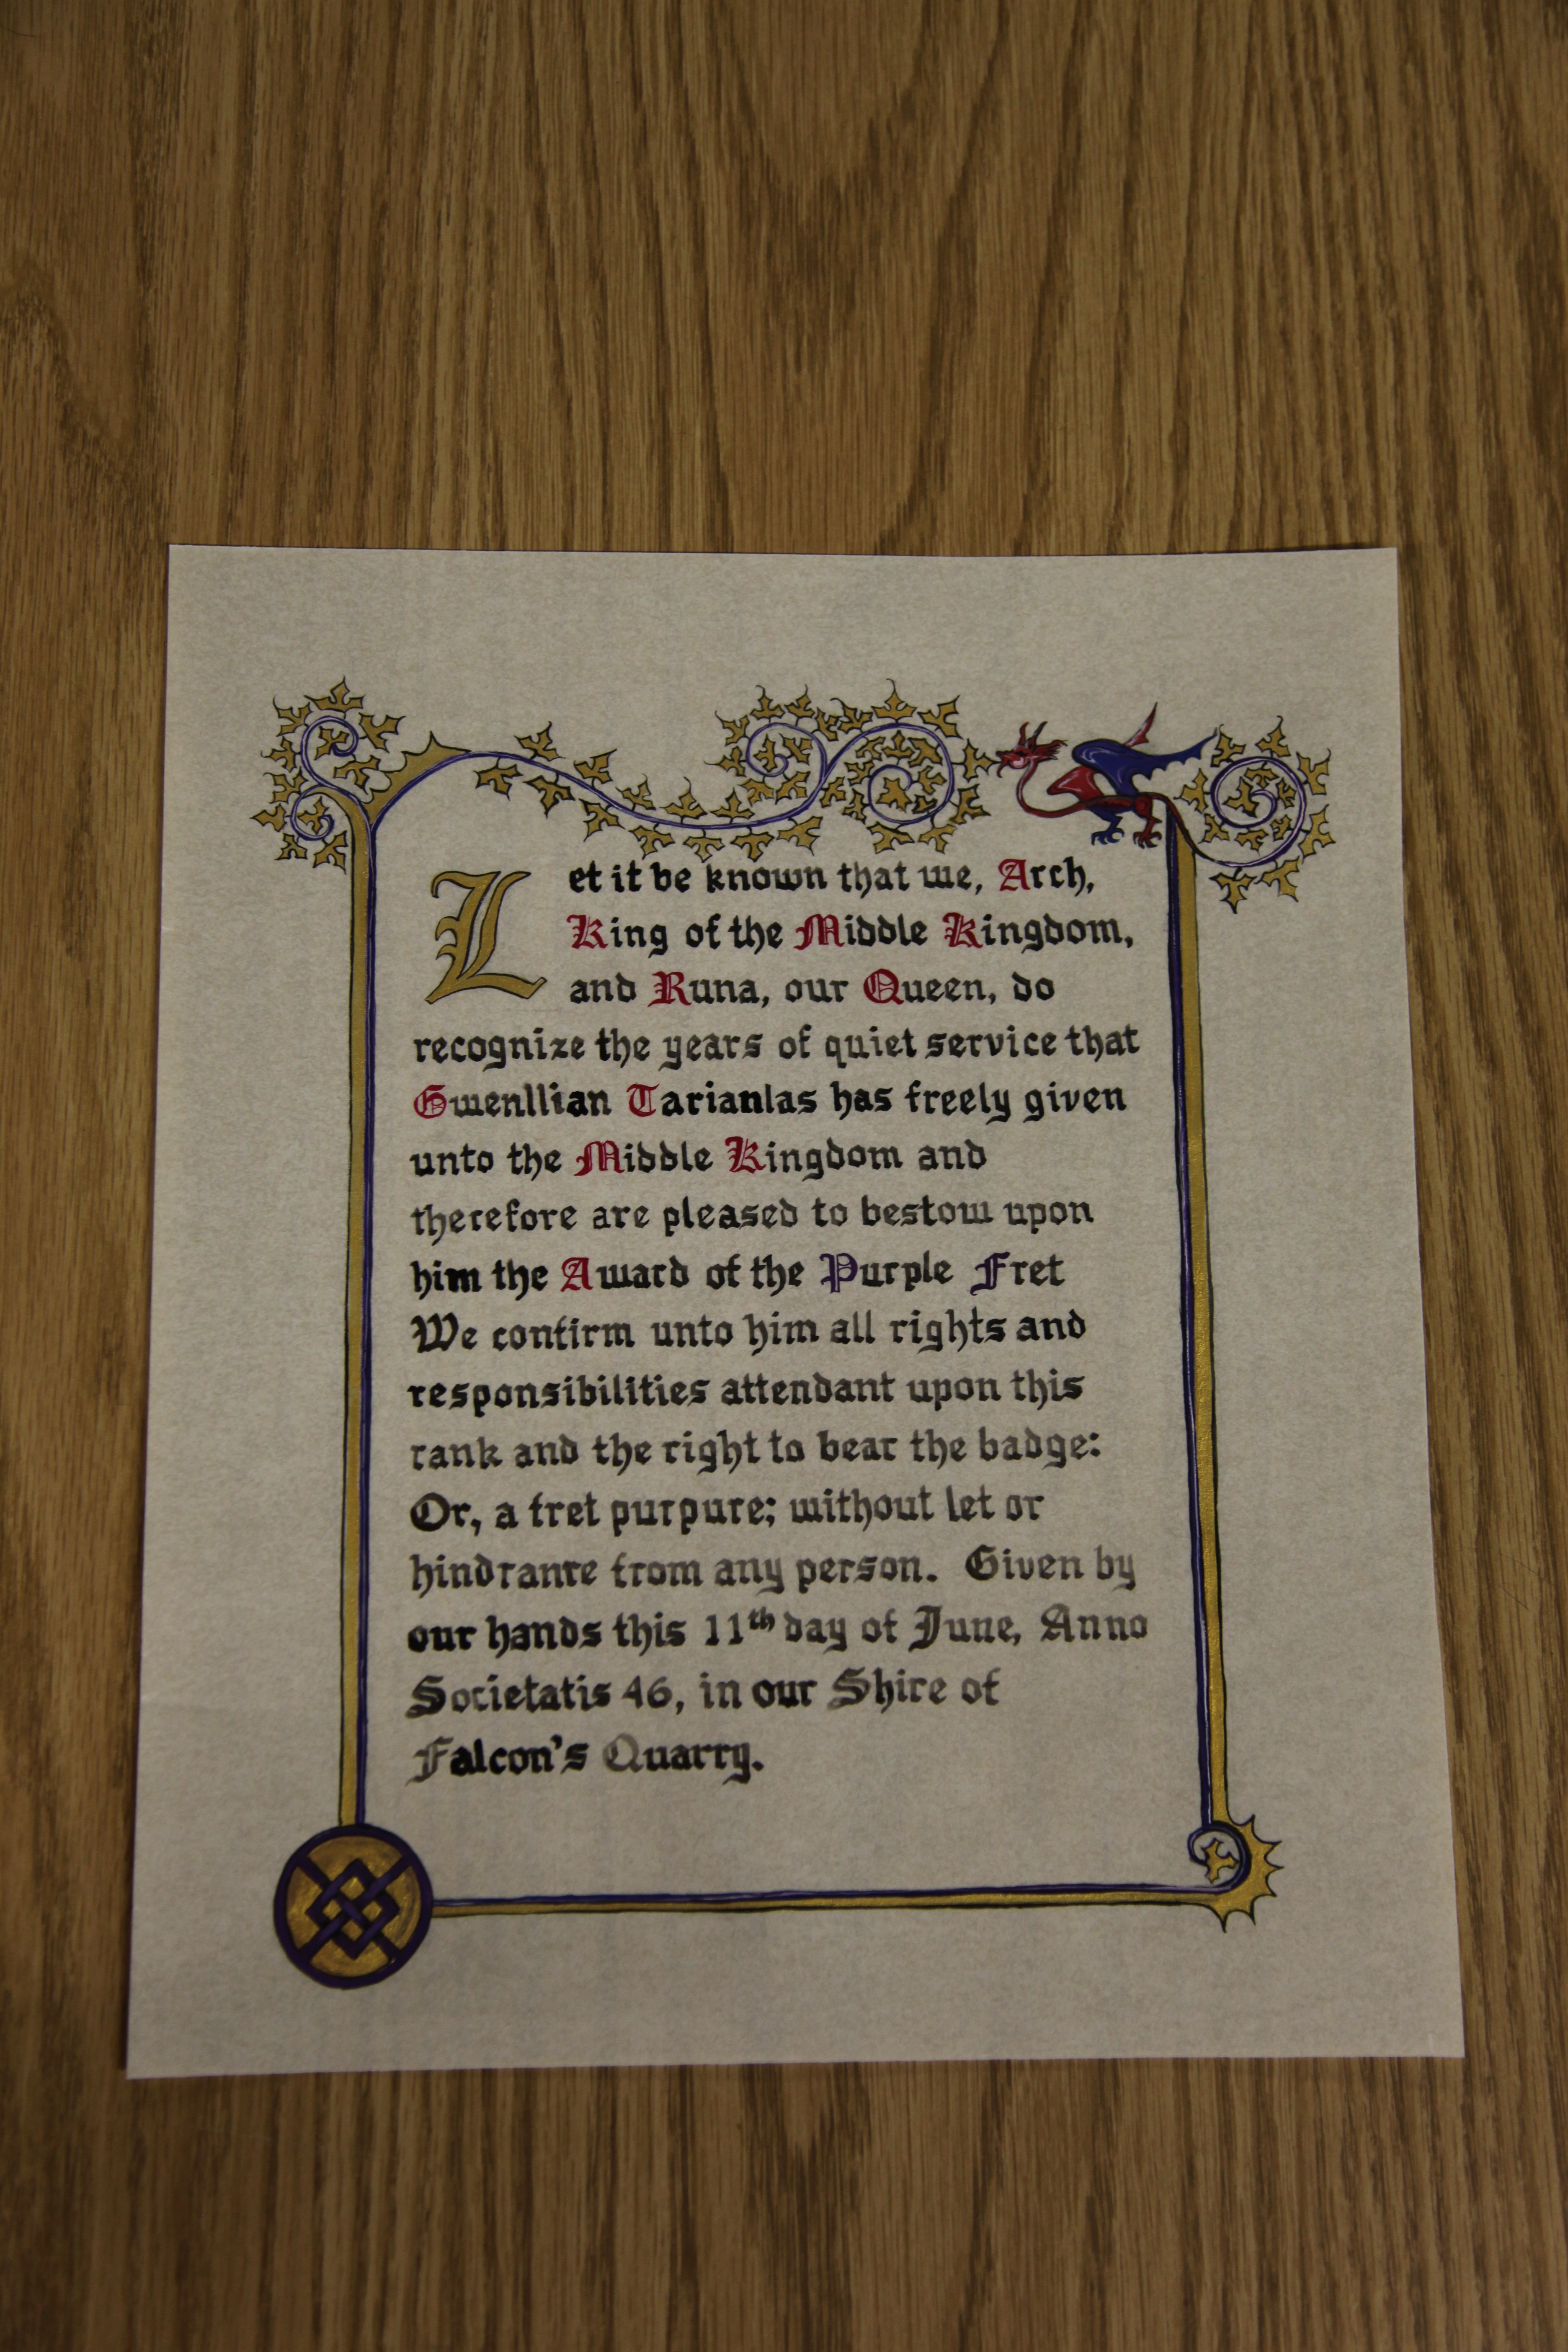 Let it be known that we, Arch,
King of the Middle Kingdom,
and Runa, our Queen, do
recognize the years of quiet service that
Gwenllian Tarianlas has freely given
unto the Middle Kingdom and
therefore are pleased to bestow upon
him the Award of the Purple Fret
We confirm unto him all rights and
responsibilities attendant upon this
rank and the right to bear the badge:
Or, a fret purpure; without let or
hindrance from any person. Given by
our hands this 11th day of June, Anno
Societatis 46, in our Shire of
Falcon's Quarry.